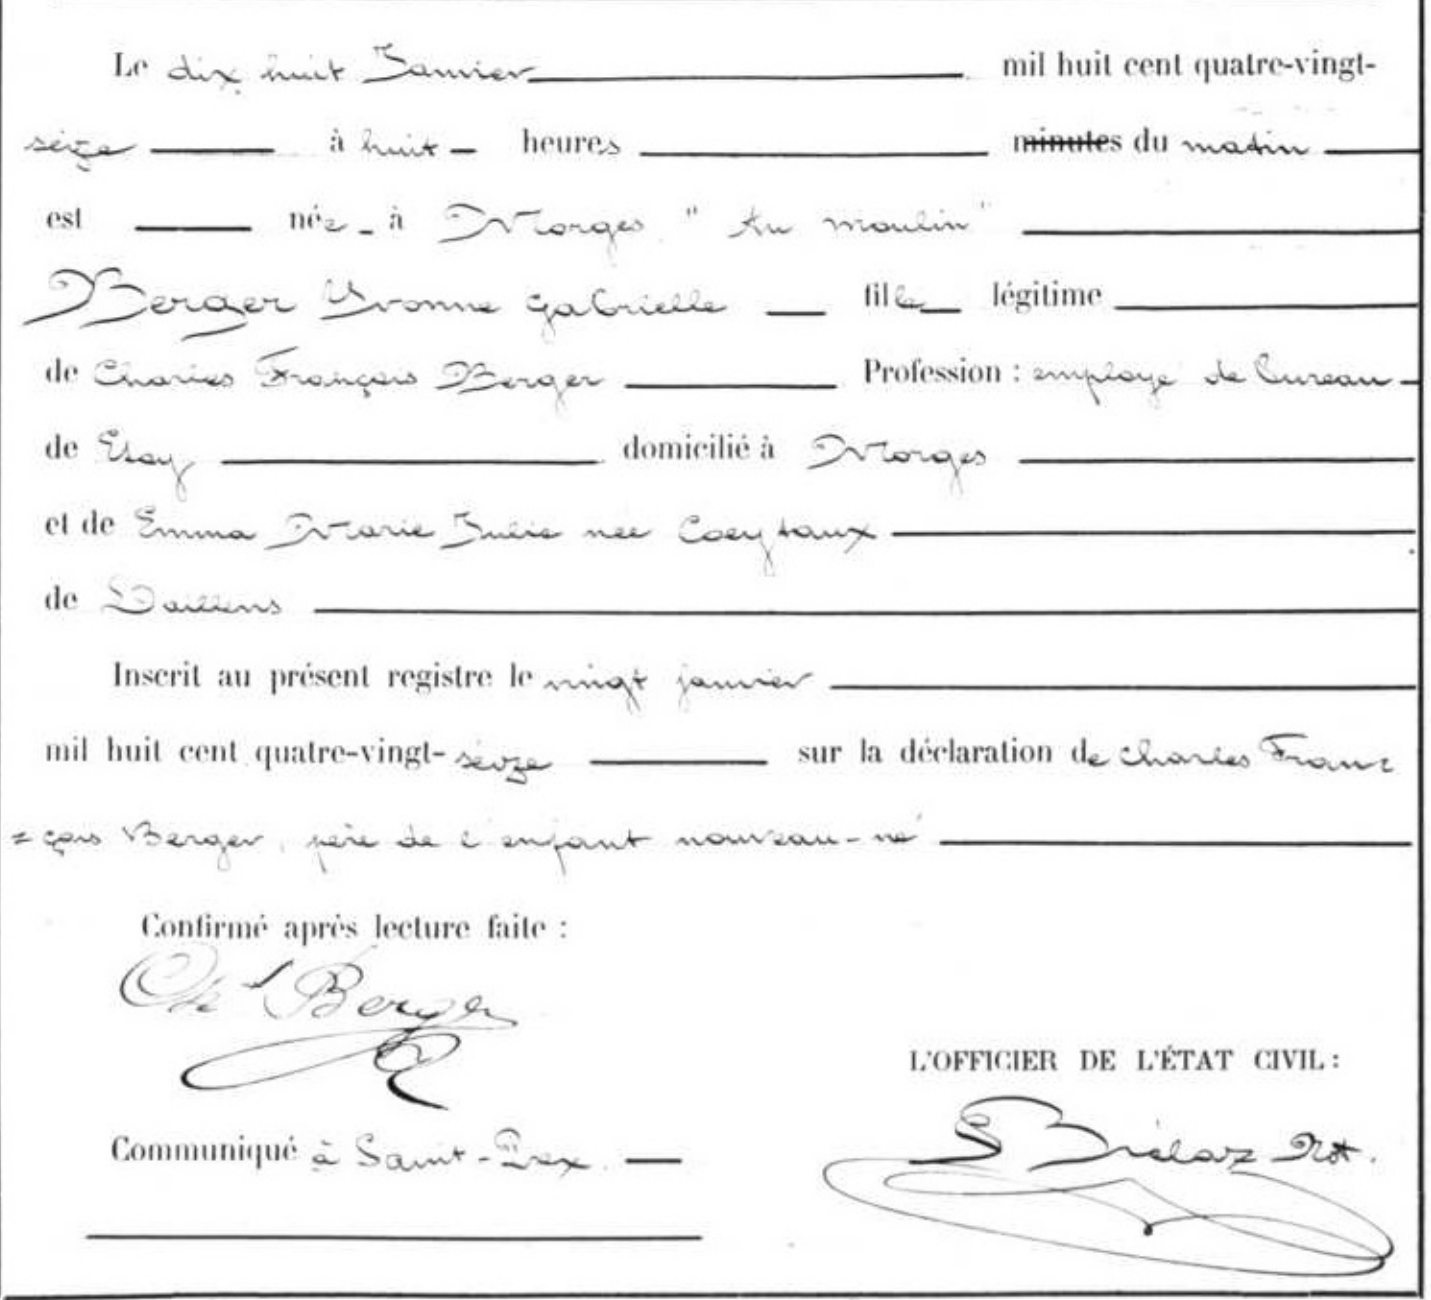 Le dix huit Janvier mil huit cent quatre-vingt-
seize à huit heures minutes du matin
est née à Morges "Au moulin"
Berger Yvonne Gabrielle fille légitime
de Charles François Berger Profession : employé de bureau
de Etoy domicilié à Morges
et de Emma Marie Julie née Coeytaux
de Daillens
Inscrit au présent registre le vingt janvier
mil huit cent quatre-vingt-seize sur la déclaration de Charles Fran=
=çois Berger, père de l'enfant nouveau-né
Confirmé après lecture faite :
Ch^s Berger
L'OFFICIER DE L'ÉTAT CIVIL :
Communiqué à Saint-Prex.
Not.